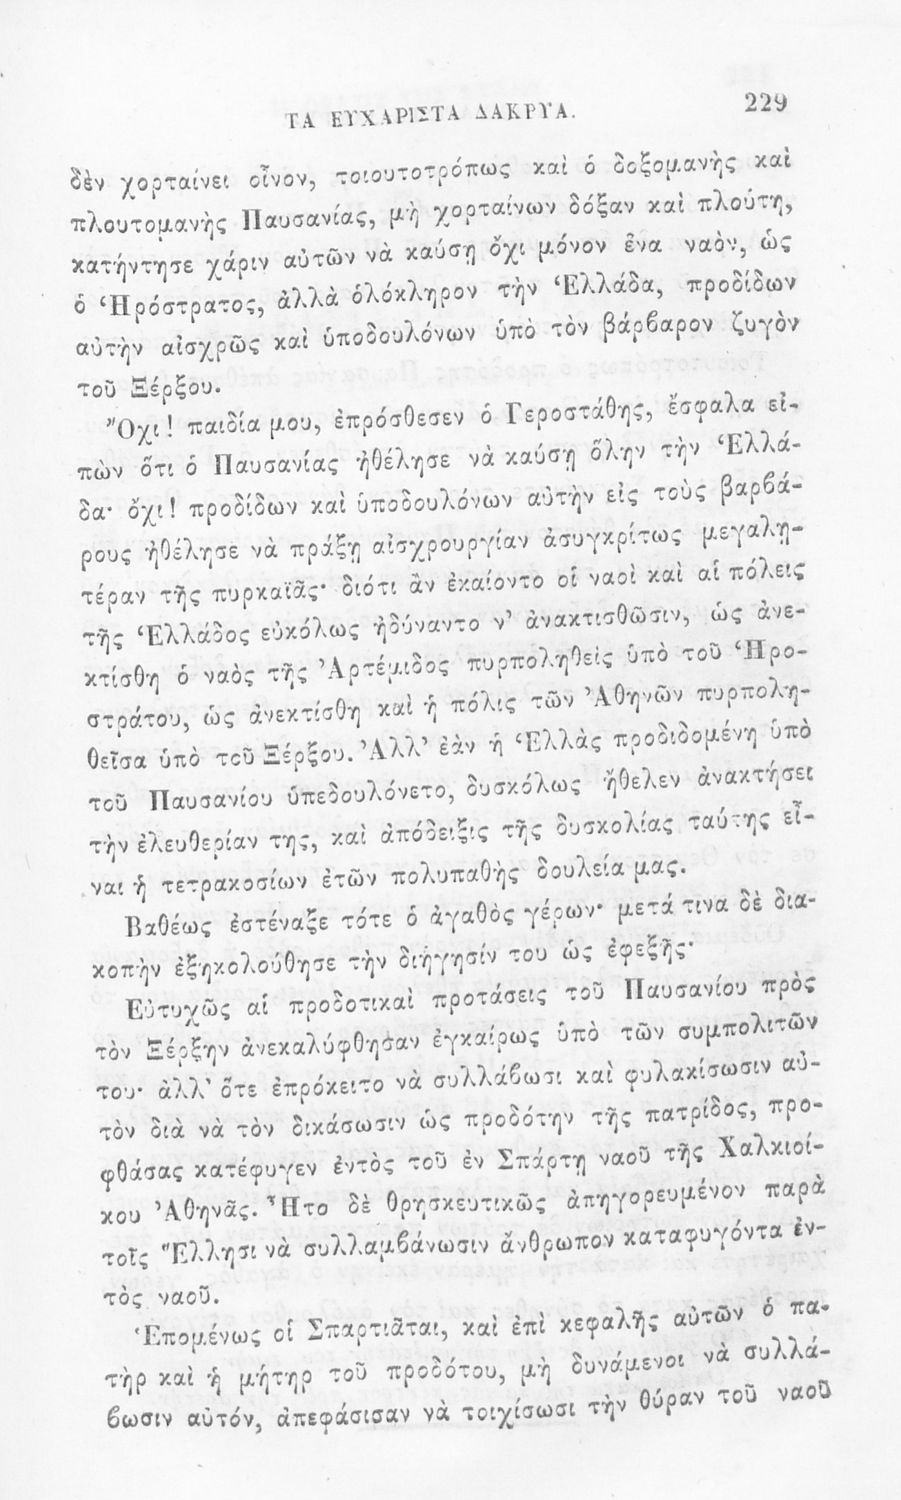 ΤΑ ΕΥΧΑΡΙΣΤΑ ΔΑΚΡΥΑ. 229
δὲν χορταίνει οἶνον, τοιουτοτρόπως καὶ ὁ δοξομανὴς καὶ
πλουτομανὴς Παυσανίας, μὴ χορταίνων δόξαν καὶ πλούτη,
κατήντησε χάριν αὐτῶν νὰ καύσῃ ὄχι μόνον ἕνα ναὸν, ὡς
ὁ Ἡρόστρατος, ἀλλὰ ὁλόκληρον τὴν Ἑλλάδα, προδίδων
αὐτὴν αἰσχρῶς καὶ ὑποδουλόνων ὑπὸ τὸν βάρβαρον ζυγὸν
τοῦ Ξέρξου.
Ὄχι! παιδία μου, ἐπρόσθεσεν ὁ Γεροστάθης, ἔσφαλα εἰ-
πὼν ὅτι ὁ Παυσανίας ἠθέλησε νὰ καύσῃ ὅλην τὴν Ἑλλά-
δα· ὄχι! προδίδων καὶ ὑποδουλόνων αὐτὴν εἰς τοὺς βαρβά-
ρους ἠθέλησε νὰ πράξῃ αἰσχρουργίαν ἀσυγκρίτως μεγαλῃ-
τέραν τῆς πυρκαϊᾶς· διότι ἂν ἐκαίοντο οἱ ναοὶ καὶ αἱ πόλεις
τῆς Ἑλλάδος εὐκόλως ἠδύναντο ν' ἀνακτισθῶσιν, ὡς ἀνε-
κτίσθη ὁ ναὸς τῆς Ἀρτέμιδος πυρποληθεὶς ὑπὸ τοῦ Ἡρο-
στράτου, ὡς ἀνεκτίσθη καὶ ἡ πόλις τῶν Ἀθηνῶν πυρπολη-
θεῖσα ὑπὸ τοῦ Ξέρξου. Ἀλλ' ἐὰν ἡ Ἑλλὰς προδιδομένη ὑπὸ
τοῦ Παυσανίου ὑπεδουλόνετο, δυσκόλως ἤθελεν ἀνακτήσει
τὴν ἐλευθερίαν της, καὶ ἀπόδειξις τῆς δυσκολίας ταύτης εἶ-
ναι ἡ τετρακοσίων ἐτῶν πολυπαθὴς δουλεία μας.
Βαθέως ἐστέναξε τότε ὁ ἀγαθὸς γέρων· μετά τινα δὲ δια-
κοπὴν ἐξηκολούθησε τὴν διήγησίν του ὡς ἐφεξῆς·
Εὐτυχῶς αἱ προδοτικαὶ προτάσεις τοῦ Παυσανίου πρὸς
τὸν Ξέρξην ἀνεκαλύφθησαν ἐγκαίρως ὑπὸ τῶν συμπολιτῶν
του· ἀλλ' ὅτε ἐπρόκειτο νὰ συλλάβωσι καὶ φυλακίσωσιν αὐ-
τὸν διὰ νὰ τὸν δικάσωσιν ὡς προδότην τῆς πατρίδος, προ-
φθάσας κατέφυγεν ἐντὸς τοῦ ἐν Σπάρτῃ ναοῦ τῆς Χαλκιοί-
κου Ἀθηνᾶς. Ἦτο δὲ θρησκευτικῶς ἀπηγορευμένον παρὰ
τοῖς Ἕλλησι νὰ συλλαμβάνωσιν ἄνθρωπον καταφυγόντα ἐν-
τὸς ναοῦ.
Ἑπομένως οἱ Σπαρτιᾶται, καὶ ἐπὶ κεφαλῆς αὐτῶν ὁ πα-
τὴρ καὶ ἡ μήτηρ τοῦ προδότου, μὴ δυνάμενοι νὰ συλλά-
βωσιν αὐτόν, ἀπεφάσισαν νὰ τοιχίσωσι τὴν θύραν τοῦ ναοῦ